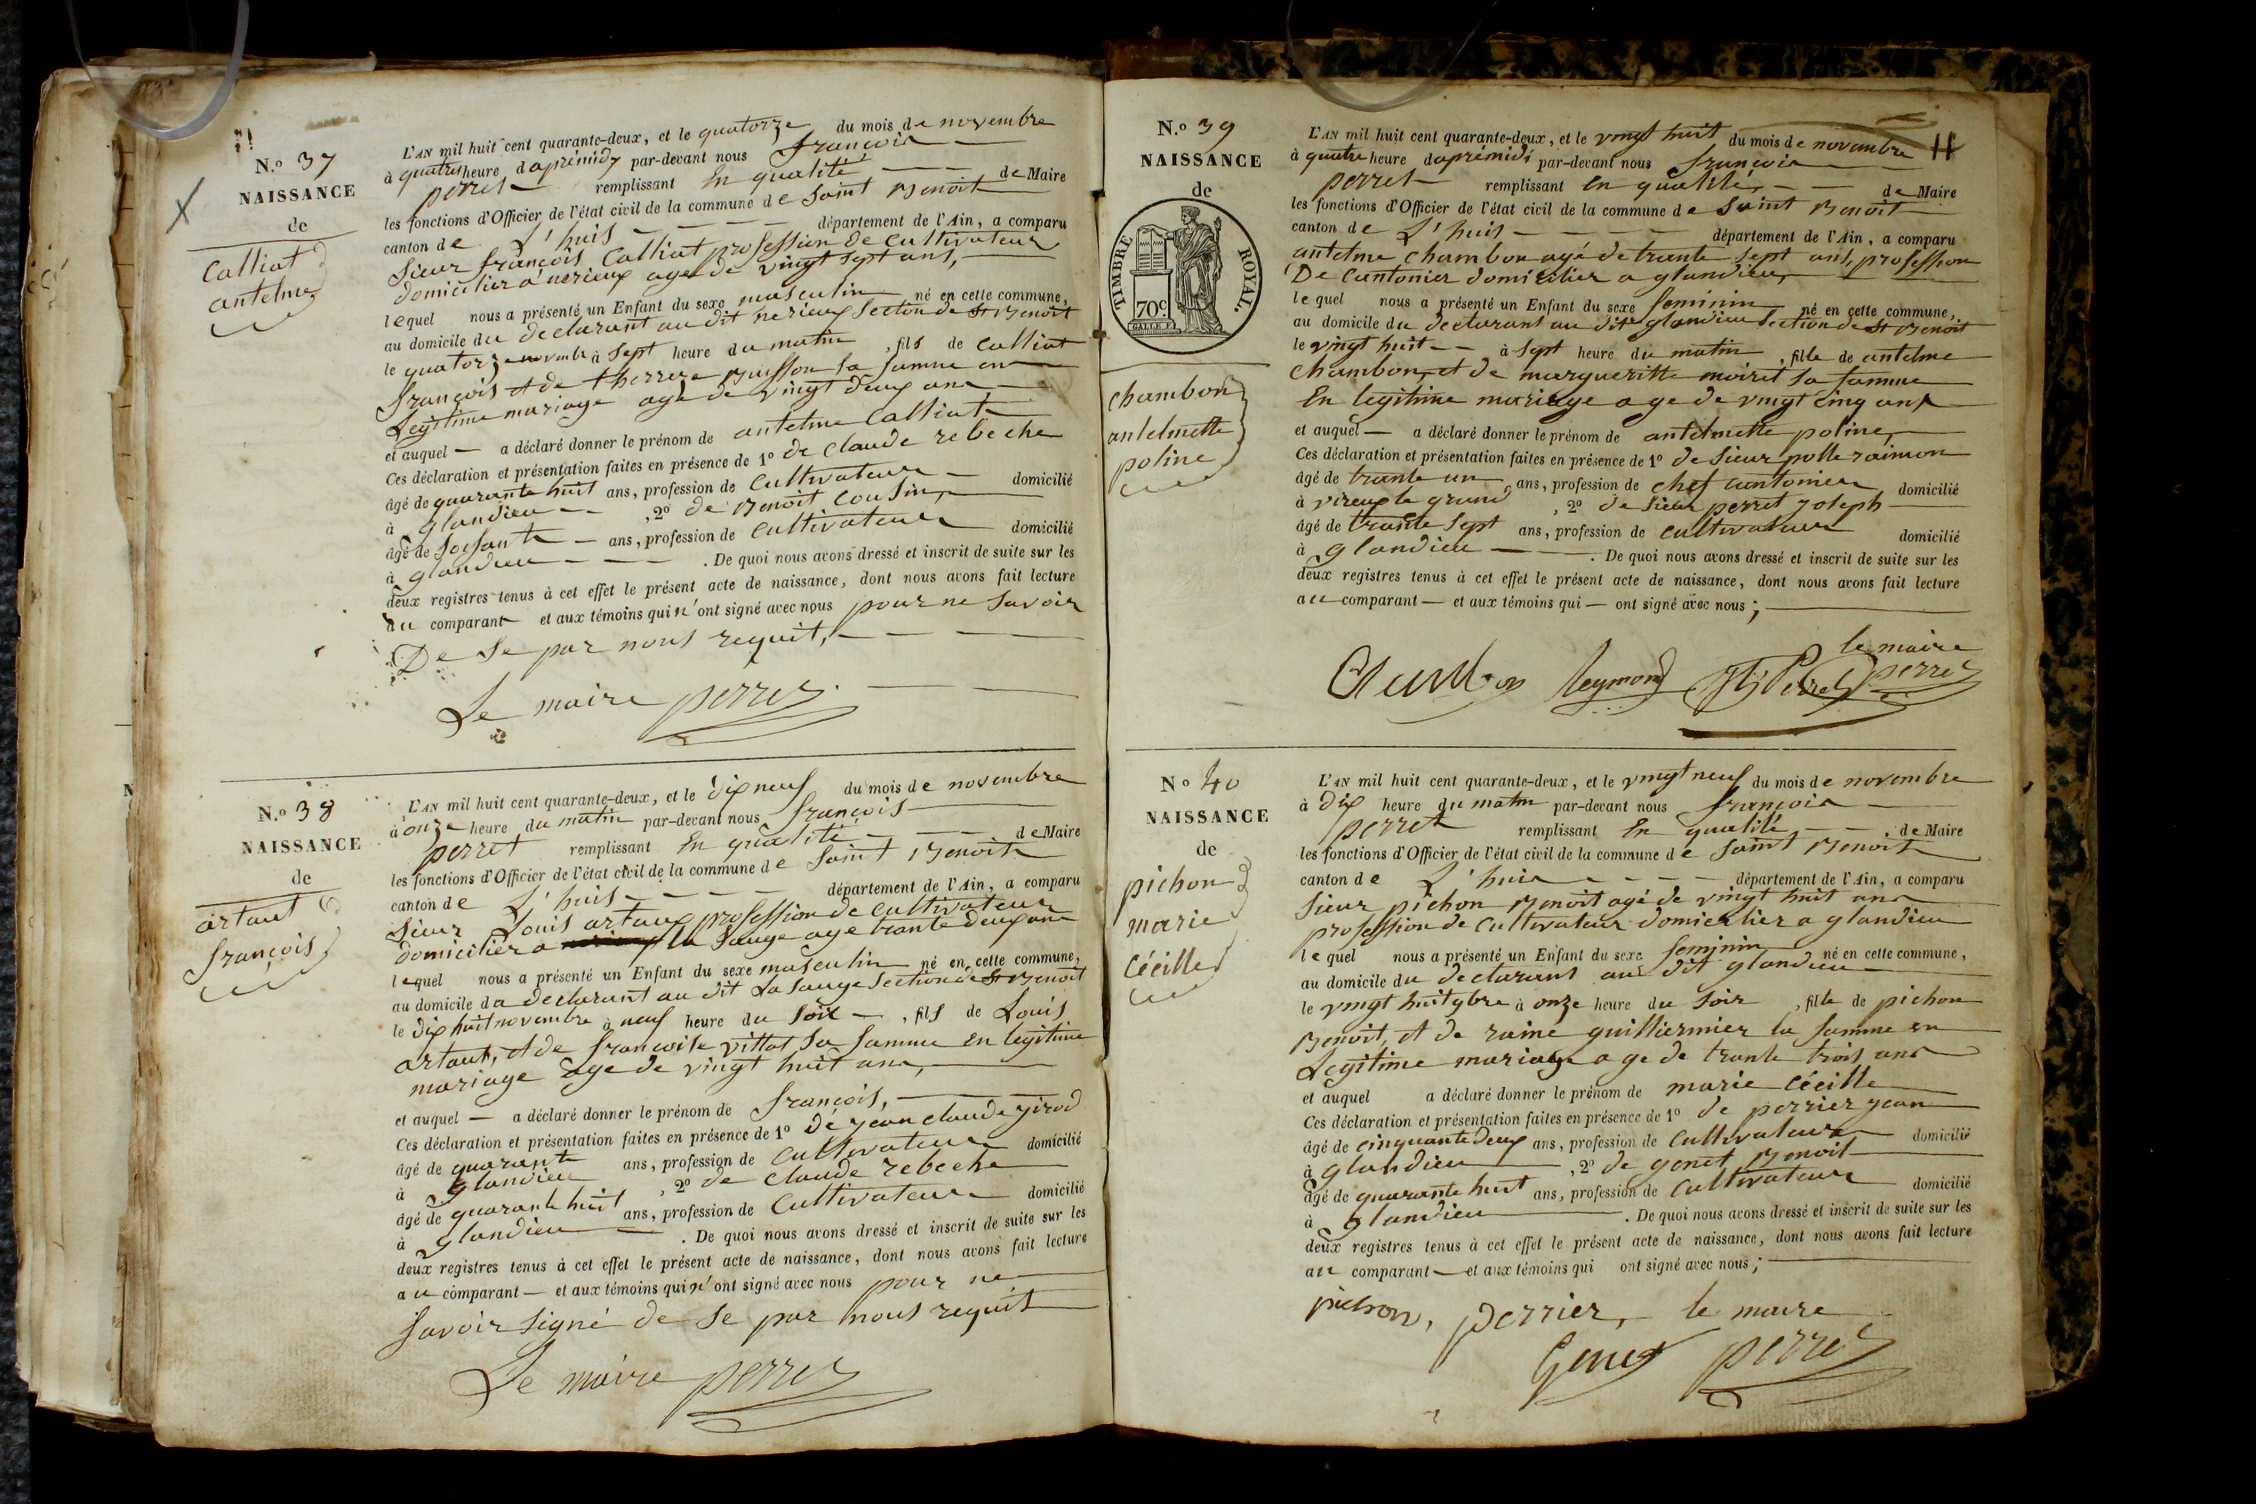 N.o 37
NAISSANCE
de
Calliat
antelme
L'AN mil huit cent quarante-deux, et le quatorze du mois de novembre
à quatres heure d'aprémidy par-devant nous françois
perret remplissant En qualité de Maire
les fonctions d'Officier de l'état civil de la commune de Saint Benoit
canton de L'huis département de l'Ain, a comparu
Sieur françois Calliat profession de cultivateur
domicilier a nerieux age de vingt sept ans,
lequel nous a présenté un Enfant du sexe masculin né en cette commune,
au domicile du declarant au dit nerieux Section de St Benoit
le quatorze novembre à Sept heure du matin, fils de Calliat
françois et de therreze Buisson sa famme en
Legitime mariage age de vingt deux ans
et auquel — a déclaré donner le prénom de antelme Calliat
Ces déclaration et présentation faites en présence de 1o de Claude rebeche
âgé de quarante huit ans, profession de Cultivateur domicilié
à glandieu , 2o de Benoit Cousin,
âgé de soisante — ans, profession de cultivateur domicilié
à glandieu . De quoi nous avons dressé et inscrit de suite sur les
deux registres tenus à cet effet le présent acte de naissance, dont nous avons fait lecture
au comparant et aux témoins qui n'ont signé avec nous pour ne Savoir
De Se par nous requit,
Le maire perret
N.o 38
NAISSANCE
de
artaut
françois
L'AN mil huit cent quarante-deux, et le dix neuf du mois de novembre
à onze heure du matin par-devant nous françois
perret remplissant En qualité de Maire
les fonctions d'Officier de l'état civil de la commune de Saint Benoit
canton de L'huis département de l'Ain, a comparu
Sieur Louis artaux profession de cultivateur
domicilier a la Sauge age trante deux ans
lequel nous a présenté un Enfant du sexe masculin né en cette commune,
au domicile du declarant au dit La Sauge Section de St Benoit
le dix huit novembre à neuf heure du Soir —, fils de Louis
artaut, et de françoise vittot Sa famme en legitime
mariage age de vingt huit ans,
et auquel — a déclaré donner le prénom de françois,
Ces déclaration et présentation faites en présence de 1o de jean claude girod
âgé de quarante ans, profession de cultivateur domicilié
à glandieu , 2o de Claude rebeche
âgé de quarante huit ans, profession de Cultivateur domicilié
à glandieu . De quoi nous avons dressé et inscrit de suite sur les
deux registres tenus à cet effet le présent acte de naissance, dont nous avons fait lecture
au comparant — et aux témoins qui n'ont signé avec nous pour ne
Savoir signé de Se par nous requit
Le maire perret
11
N.o 39
NAISSANCE
de
TIMBRE ROYAL.
70c.
chambon
antelmette
poline
L'AN mil huit cent quarante-deux, et le vingt huit du mois de novembre
à quatre heure d'aprémidi par-devant nous françois
perret remplissant En qualité, de Maire
les fonctions d'Officier de l'état civil de la commune de Saint Benoit
canton de L'huis département de l'Ain, a comparu
antelme Chambon agé de trante Sept ans, profession
De Cantonier domicilier a glandieu,
lequel nous a présenté un Enfant du sexe feminin né en cette commune,
au domicile du declarant au dit glandieu Section de St Benoit
le vingt huit — à Sept heure du matin, fille de antelme
Chambon, et de margueritte moiret Sa famme
En legitime mariage age de vingt cinq ans
et auquel — a déclaré donner le prénom de antelmette poline,
Ces déclaration et présentation faites en présence de 1o de Sieur polle raimon
âgé de trante un ans, profession de chef cantonier domicilié
à vireux le grand , 2o de Sieur perret joseph
âgé de trante Sept ans, profession de cultivateur domicilié
à glandieu . De quoi nous avons dressé et inscrit de suite sur les
deux registres tenus à cet effet le présent acte de naissance, dont nous avons fait lecture
au comparant — et aux témoins qui — ont signé avec nous;
le maire
Chambon Reymond Perret perret
No 40
NAISSANCE
de
pichon
marie
Cécille
L'AN mil huit cent quarante-deux, et le vingt neuf du mois de novembre
à dix heure du matin par-devant nous françois
perret remplissant En qualité de Maire
les fonctions d'Officier de l'état civil de la commune de Saint Benoit
canton de L'huis département de l'Ain, a comparu
Sieur pichon Benoit agé de vingt huit ans
profession de Cultivateur domicilier a glandieu
lequel nous a présenté un Enfant du sexe feminin né en cette commune,
au domicile du declarant au dit glandieu
le vingt huit 9bre à onze heure du Soir, fille de pichon
Benoit, et de raine guilliermier la famme en
Legitime mariage age de trante trois ans
et auquel a déclaré donner le prénom de marie Cécille
Ces déclaration et présentation faites en présence de 1o de perrier jean
âgé de cinquante deux ans, profession de Cultivateur domicilié
à glandieu , 2o de genet Benoit
âgé de quarante huit ans, profession de Cultivateur domicilié
à glandieu . De quoi nous avons dressé et inscrit de suite sur les
deux registres tenus à cet effet le présent acte de naissance, dont nous avons fait lecture
au comparant — et aux témoins qui ont signé avec nous;
pichon, perrier, le maire
Genet perret